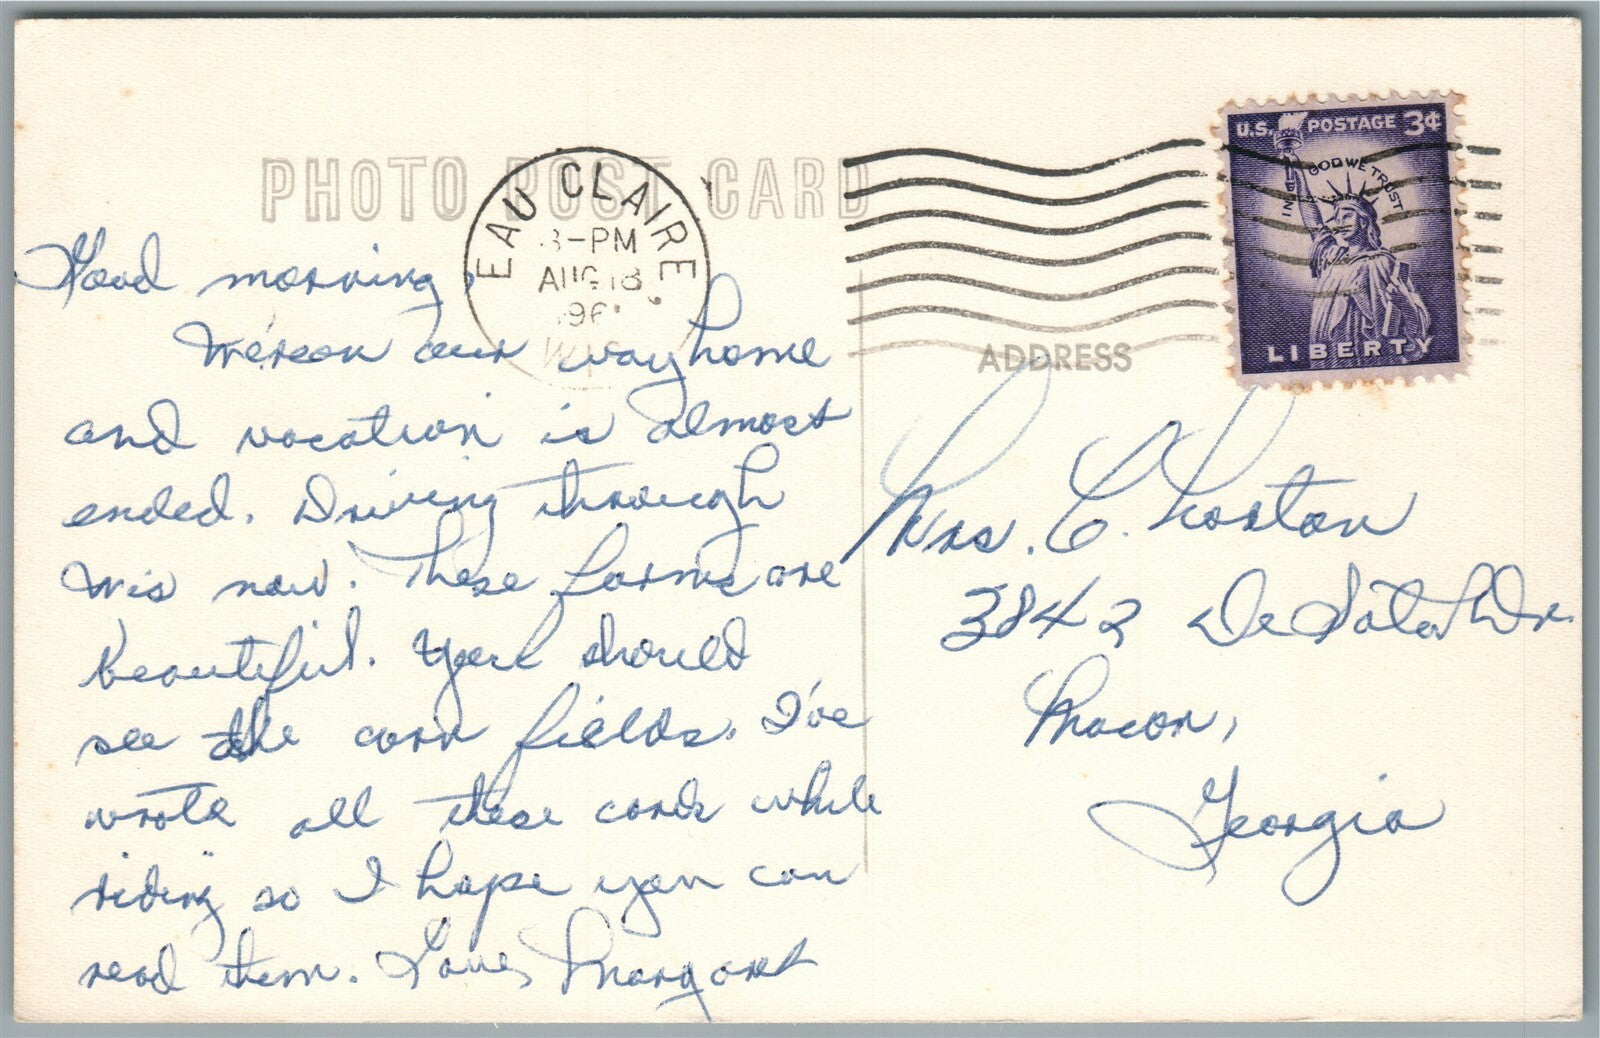 PHOTO POST CARD
EAU CLAIRE
-PM
AUG 18
196
WIS
U.S. POSTAGE 3¢
IN GOD WE TRUST
LIBERTY
ADDRESS
Good morning,
We're on our way home
and vacation is almost
ended. Driving through
Wis now. These farms are
beautiful. You should
see the corn fields. I've
wrote all these cards while
riding so I hope you can
read them. Love, Margaret
Mrs. C. Horton
3842 De Soto Dr.
Macon,
Georgia